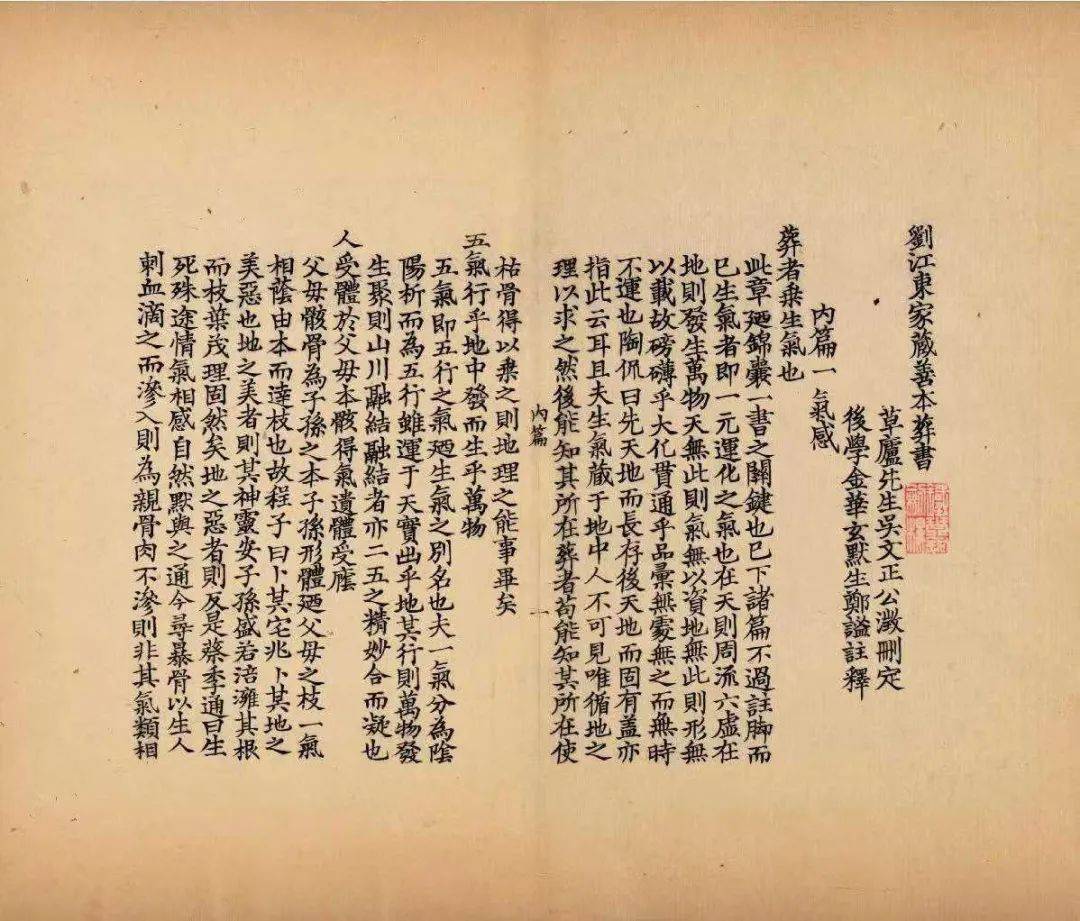 劉江東家藏善本葬書
草廬先生吳文正公澂刪定
後學金華玄默生鄭謐註釋
内篇一氣感
葬者乗生氣也
此章廼錦囊一書之關鍵也巳下諸篇不過註脚而
巳生氣者即一元運化之氣也在天則周流六虛在
地則發生萬物天無此則氣無以資地無此則形無
以載故磅礴乎大化貫通乎品彙無處無之而無時
不運也陶侃曰先天地而長存後天地而固有盖亦
指此云耳且夫生氣蔵于地中人不可見唯循地之
理以求之然後能知其所在葬者苟能知其所在使
内篇
一
枯骨得以乗之則地理之能事畢矣
五氣行乎地中發而生乎萬物
五氣即五行之氣廼生氣之别名也夫一氣分為隂
陽析而為五行雖運于天實出乎地其行則萬物發
生聚則山川融結融結者亦二五之精妙合而凝也
人受體於父毋本骸得氣遺體受廕
父毋骸骨為子孫之本子孫形體廼父毋之枝一氣
相蔭由本而逹枝也故程子曰卜其宅兆卜其地之
美惡也地之美者則其神靈安子孫盛若涪灕其根
而枝葉茂理固然矣地之惡者則反是蔡季通曰生
死殊途情氣相感自然默與之通今尋暴骨以生人
刺血滴之而滲入則為親骨肉不滲則非其氣類相